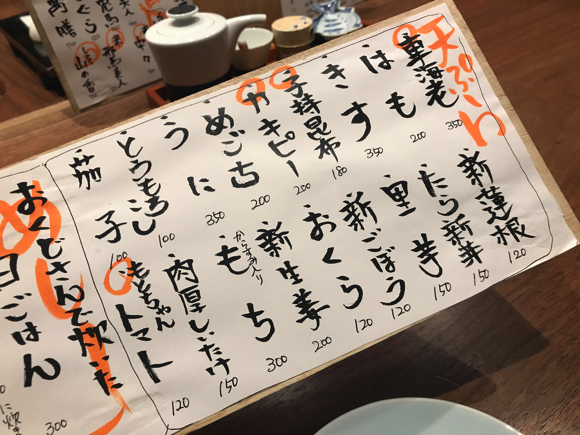 天ぷら
車海老 350
はも 200
きす 350
子持昆布 180
カキピー 200
めごち 200
うに 350
とうもろこし 100
茄子 100
新蓮根 120
たら新芽 150
里芋 150
新ごぼう 120
おくら 120
新生姜 200
からすみ入り
もち 300
肉厚しいたけ 150
もとちゃん
トマト 120
めし
おくどさんで炊いた
ごはん
300